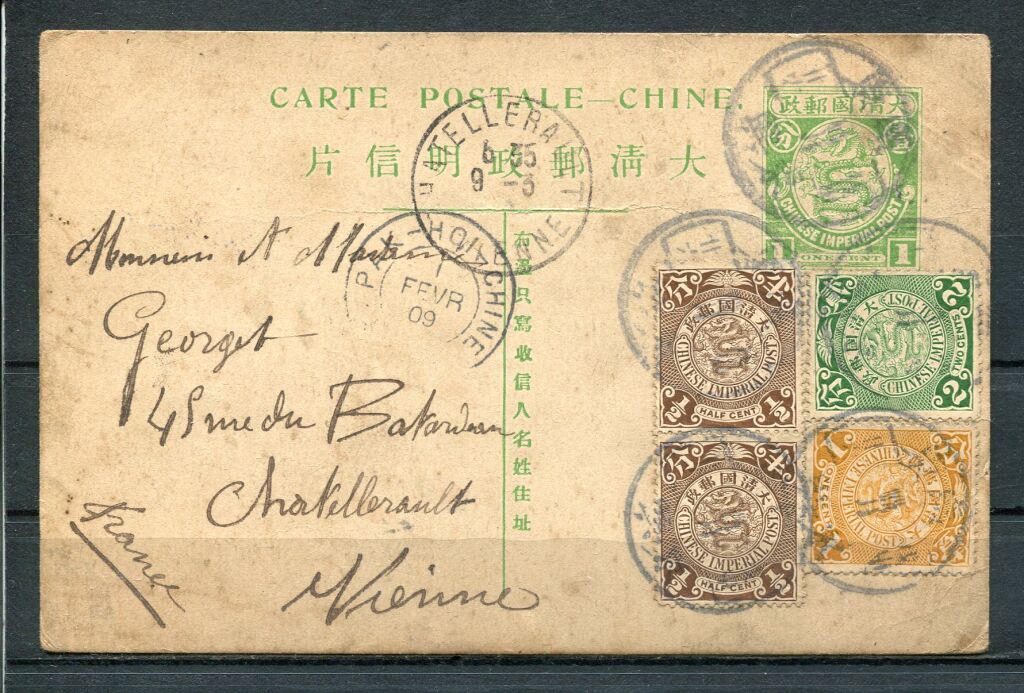 CARTE POSTALE—CHINE.
片信明政郵清大
右邊只寫收信人名姓住址
政郵國清大
分
壹
CHINESE IMPERIAL POST
1 ONE CENT 1
CHATELLERAULT
6 35
9 -3
VIENNE
CHINE
1
FEVR
09
Monsieur A
Georget
45 rue du
Chatellerault
Vienne
France
分 半
政郵國清大
CHINESE IMPERIAL POST
½ HALF CENT ½
大清國郵政
CHINESE IMPERIAL POST
2 TWO CENTS 2
分 半
政郵國清大
CHINESE IMPERIAL POST
½ HALF CENT ½
CHINESE IMPERIAL POST
1 ONE CENT 1